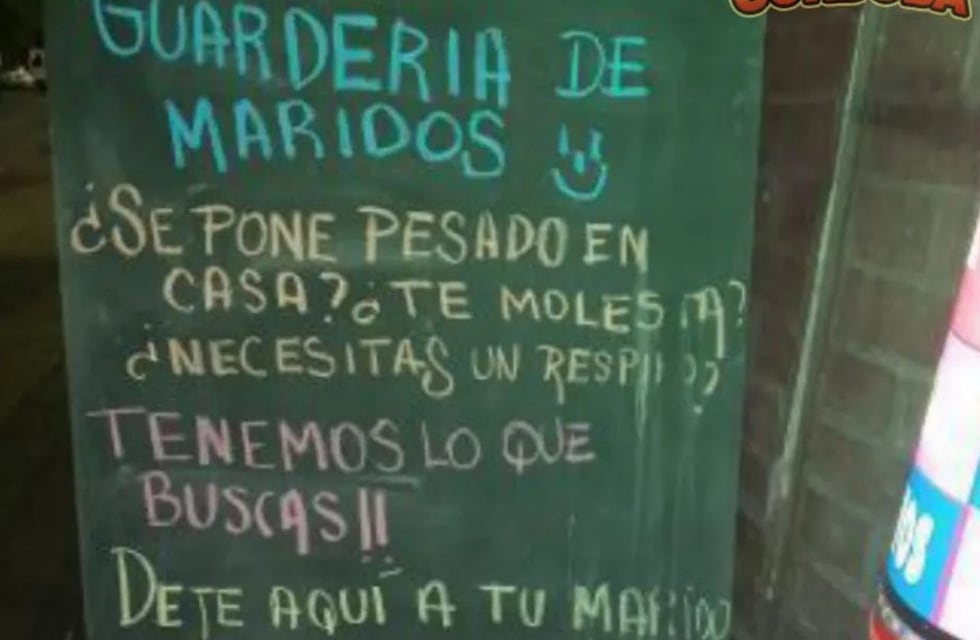 CORDOBA
GUARDERIA DE
MARIDOS
¿SE PONE PESADO EN
CASA? ¿TE MOLESTA?
¿NECESITAS UN RESPIRO?
TENEMOS LO QUE
BUSCAS!!
DEJE AQUÍ A TU MARIDO